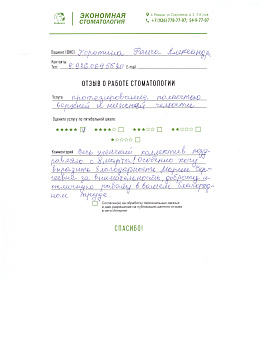 ЭКОНОМНАЯ
СТОМАТОЛОГИЯ
Пациент (ФИО) Коротина Раиса Александр
Контакты
Тел. E-mail
ОТЗЫВ О РАБОТЕ СТОМАТОЛОГИИ
Услуга протезирование полностью
верхней и нижней челюсти
Оцените услугу по пятибальной шкале:
Комментарий Весь женский коллектив позд
равляю с 8 марта! Особенно хочу
выразить благодарность Марии Сер
геевне за внимательность, доброту и
отличную работу в вашем благород
ном труде
Согласен(а) на обработку персональных данных
и даю разрешение на публикацию данного отзыва
в сети Интернет
СПАСИБО!